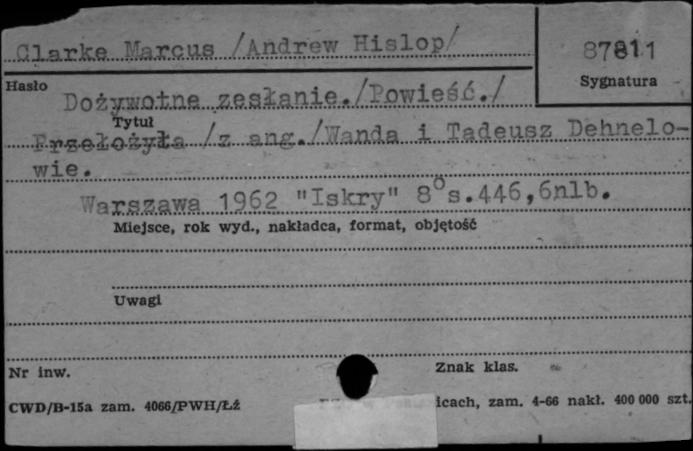 Clarke Marcus /Andrew Hislop/
87811
Sygnatura
Hasło
Dożywotne zesłanie./Powieść./
Tytuł
Przełożyła /z ang./Wanda i Tadeusz Dehnelo-
wie.
Warszawa 1962 "Iskry" 8° s.446,6nlb.
Miejsce, rok wyd., nakładca, format, objętość
Uwagi
Nr inw.
Znak klas.
CWD/B-15a zam. 4066/PWH/Łź
icach, zam. 4-66 nakł. 400 000 szt.